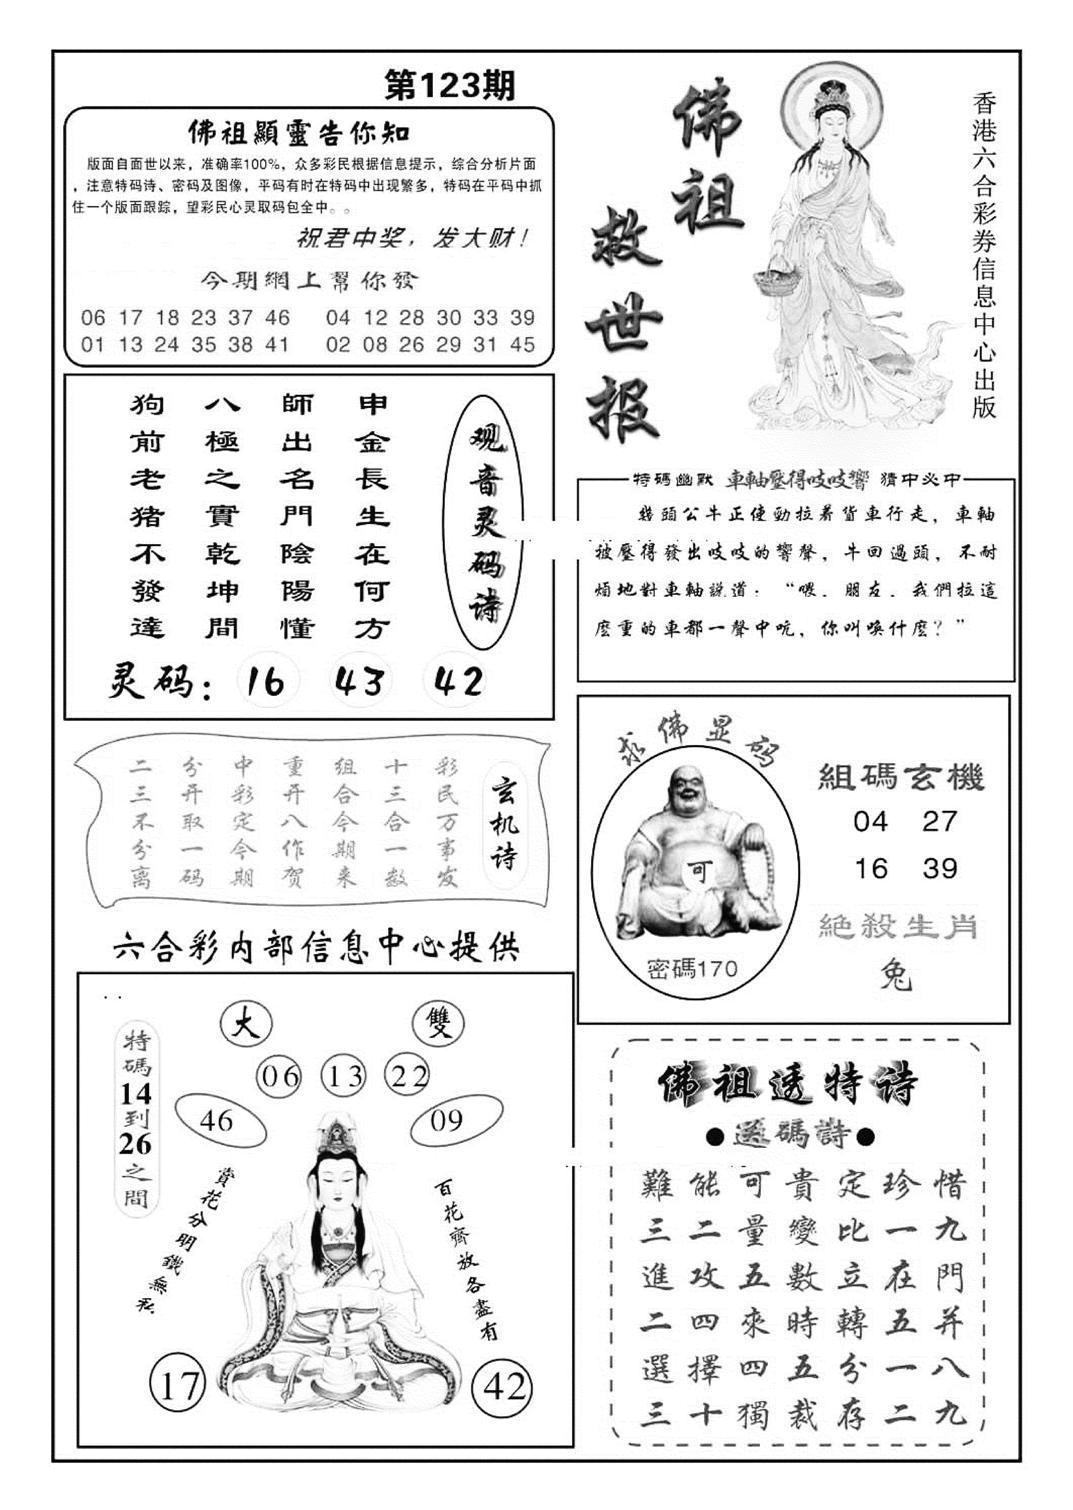 第123期
佛祖顯靈告你知
版面自面世以来，准确率100%，众多彩民根据信息提示，综合分析片面
，注意特码诗、密码及图像，平码有时在特码中出现繁多，特码在平码中抓
住一个版面跟踪，望彩民心灵取码包全中。。
祝君中奖，发大财！
今期網上幫你發
06 17 18 23 37 46 04 12 28 30 33 39
01 13 24 35 38 41 02 08 26 29 31 45
佛祖
救世报
香港六合彩券信息中心出版
观音灵码诗
申金長生在何方
師出名門陰陽懂
八極之實乾坤間
狗前老猪不發達
灵码：16 43 42
特碼幽默 車軸壓得吱吱響 猜中必中
幾頭公牛正使勁拉着貨車行走，車軸
被壓得發出吱吱的響聲，牛回過頭，不耐
煩地對車軸説道：“喂，朋友，我們拉這
麽重的車都一聲中吭，你叫喚什麽？”
玄机诗
彩民万事发
十三合一数
组合今期来
重开八作贺
中彩定今期
分开取一码
二三不分离
求佛显码
可
密碼170
組碼玄機
04 27
16 39
絶殺生肖
兔
六合彩内部信息中心提供
特碼14到26之間
大 雙
06 13 22
46 09
賞花分明鐵無私
百花齊放各盡有
17 42
佛祖透特诗
●送碼詩●
難能可貴定珍惜
三二量變比一九
進攻五數立在門
二四來時轉五并
選擇四五分一八
三十獨裁存二九